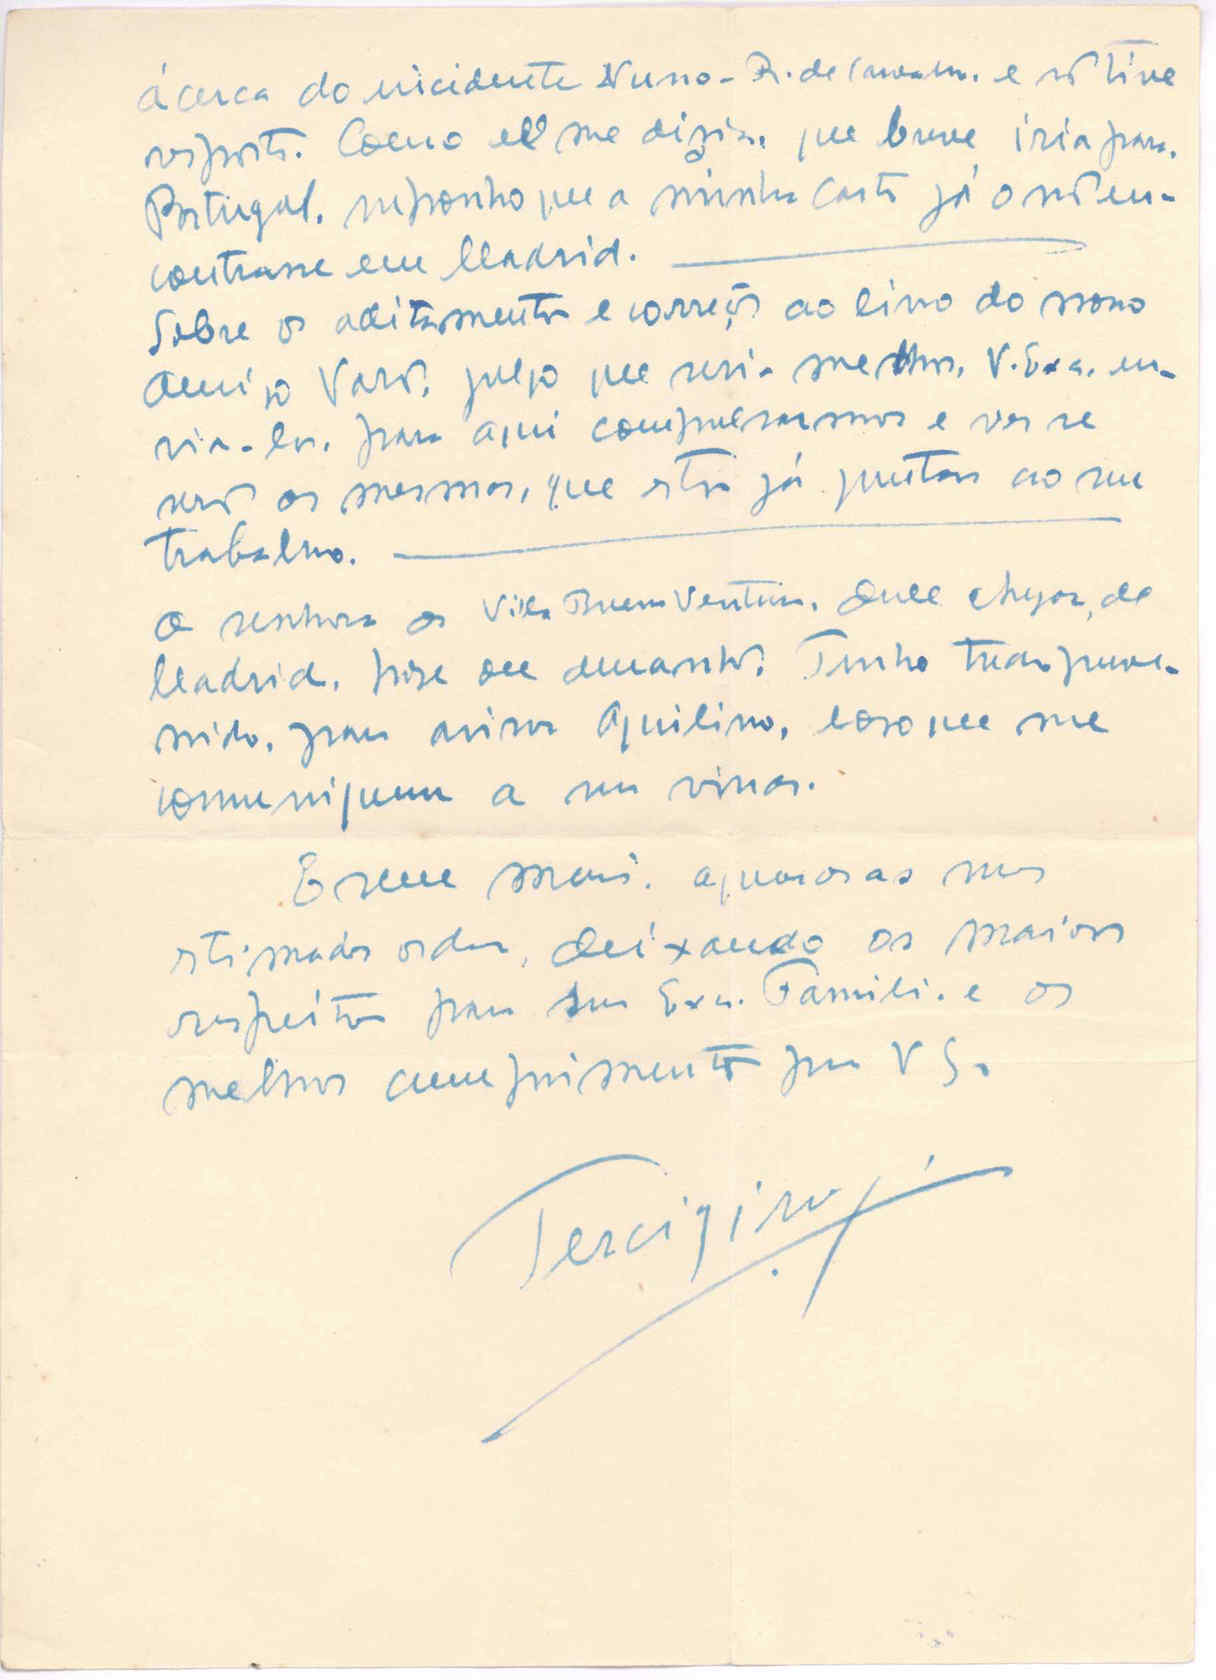 ácerca do incidente Nuno - R. de Carvalho. e não tive
resposta. Como elle me dizia, que breve iria para
Portugal, suponho que a minha carta já o não en-
contrasse em Madrid.
Sobre os aditamentos e correções ao livro do nosso
amigo Varão, julgo que seria melhor, V. Exa. en-
via-los, para aqui compulsarmos e ver se
serão os mesmos, que estão já juntos ao seu
trabalho.
A senhora Vila Buenaventura, deve chegar, de
Madrid, hoje ou amanhã. Tenho tudo preve-
nido, para avisar Aquilino, logo que me
comuniquem a sua vinda.
E sem mais, aguardo as suas
estimadas ordens, deixando os maiores
respeitos para sua Exa. Familia e os
melhores cumprimentos para V S.